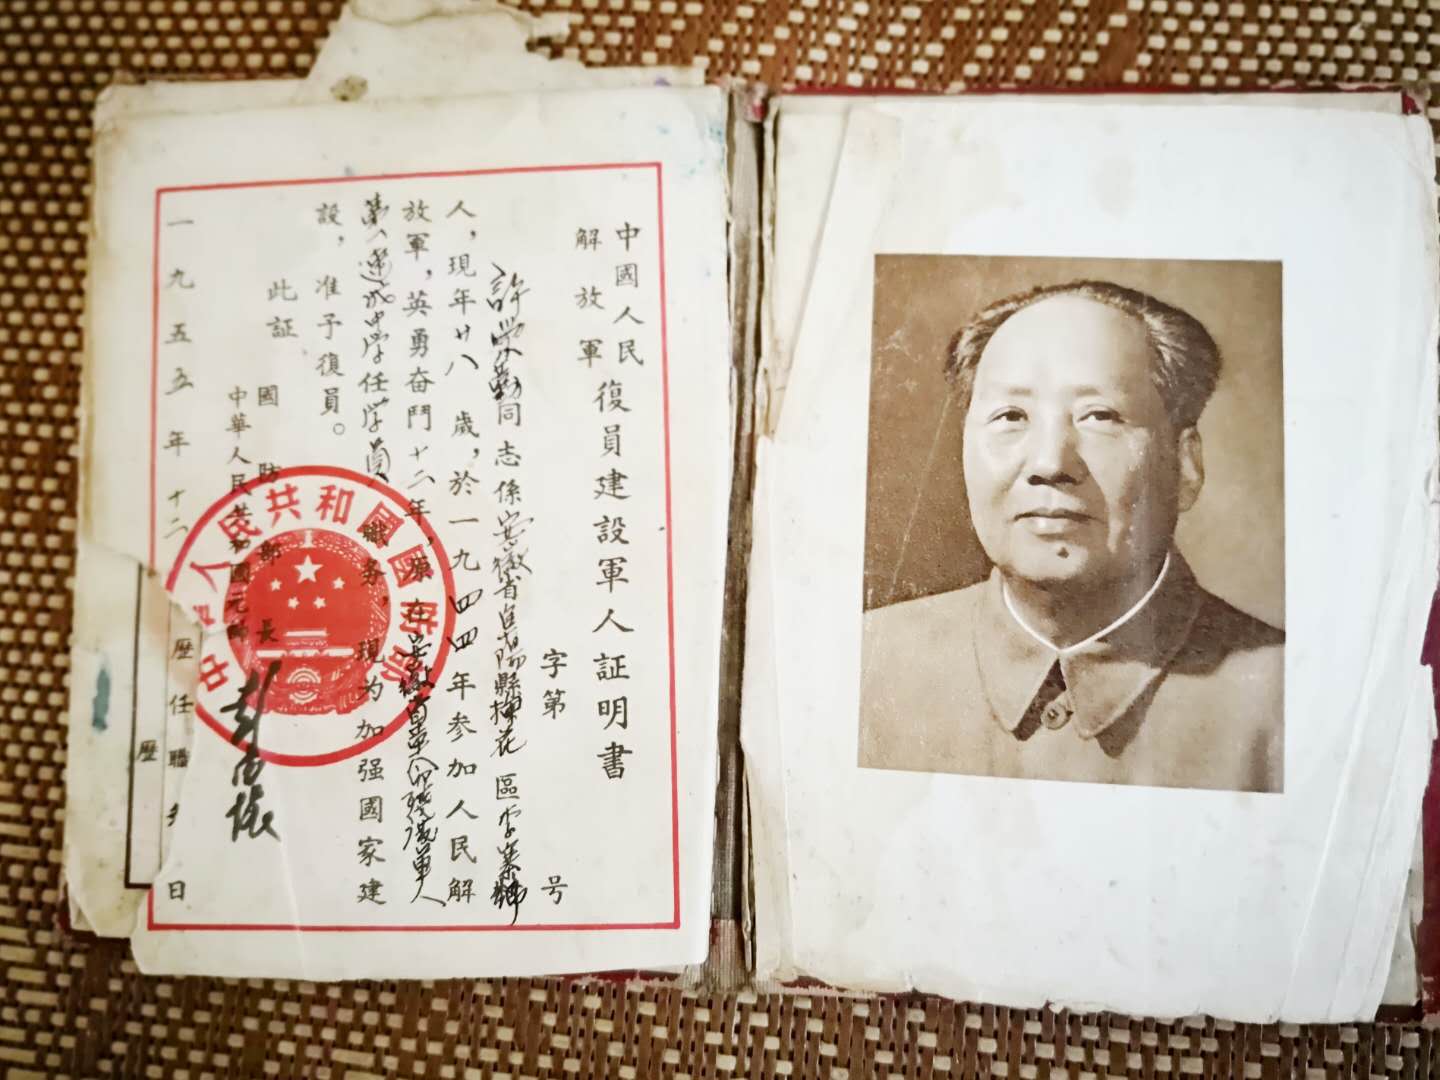 中國人民
解放軍
復員建設軍人証明書
字第 号
許学勤同志係安徽省阜陽縣梅花區李寨鄉
人，現年廿八歲，於一九四四年参加人民解
放軍，英勇奋鬥十二年，原在安徽省軍
第八速成中学任学員職务，現为加强國家建
設，准予復員。
此証
國防部長
中華人民共和國元帥
彭德懷
一九五五年十二 日
中華人民共和國國防部
歷任職
歷